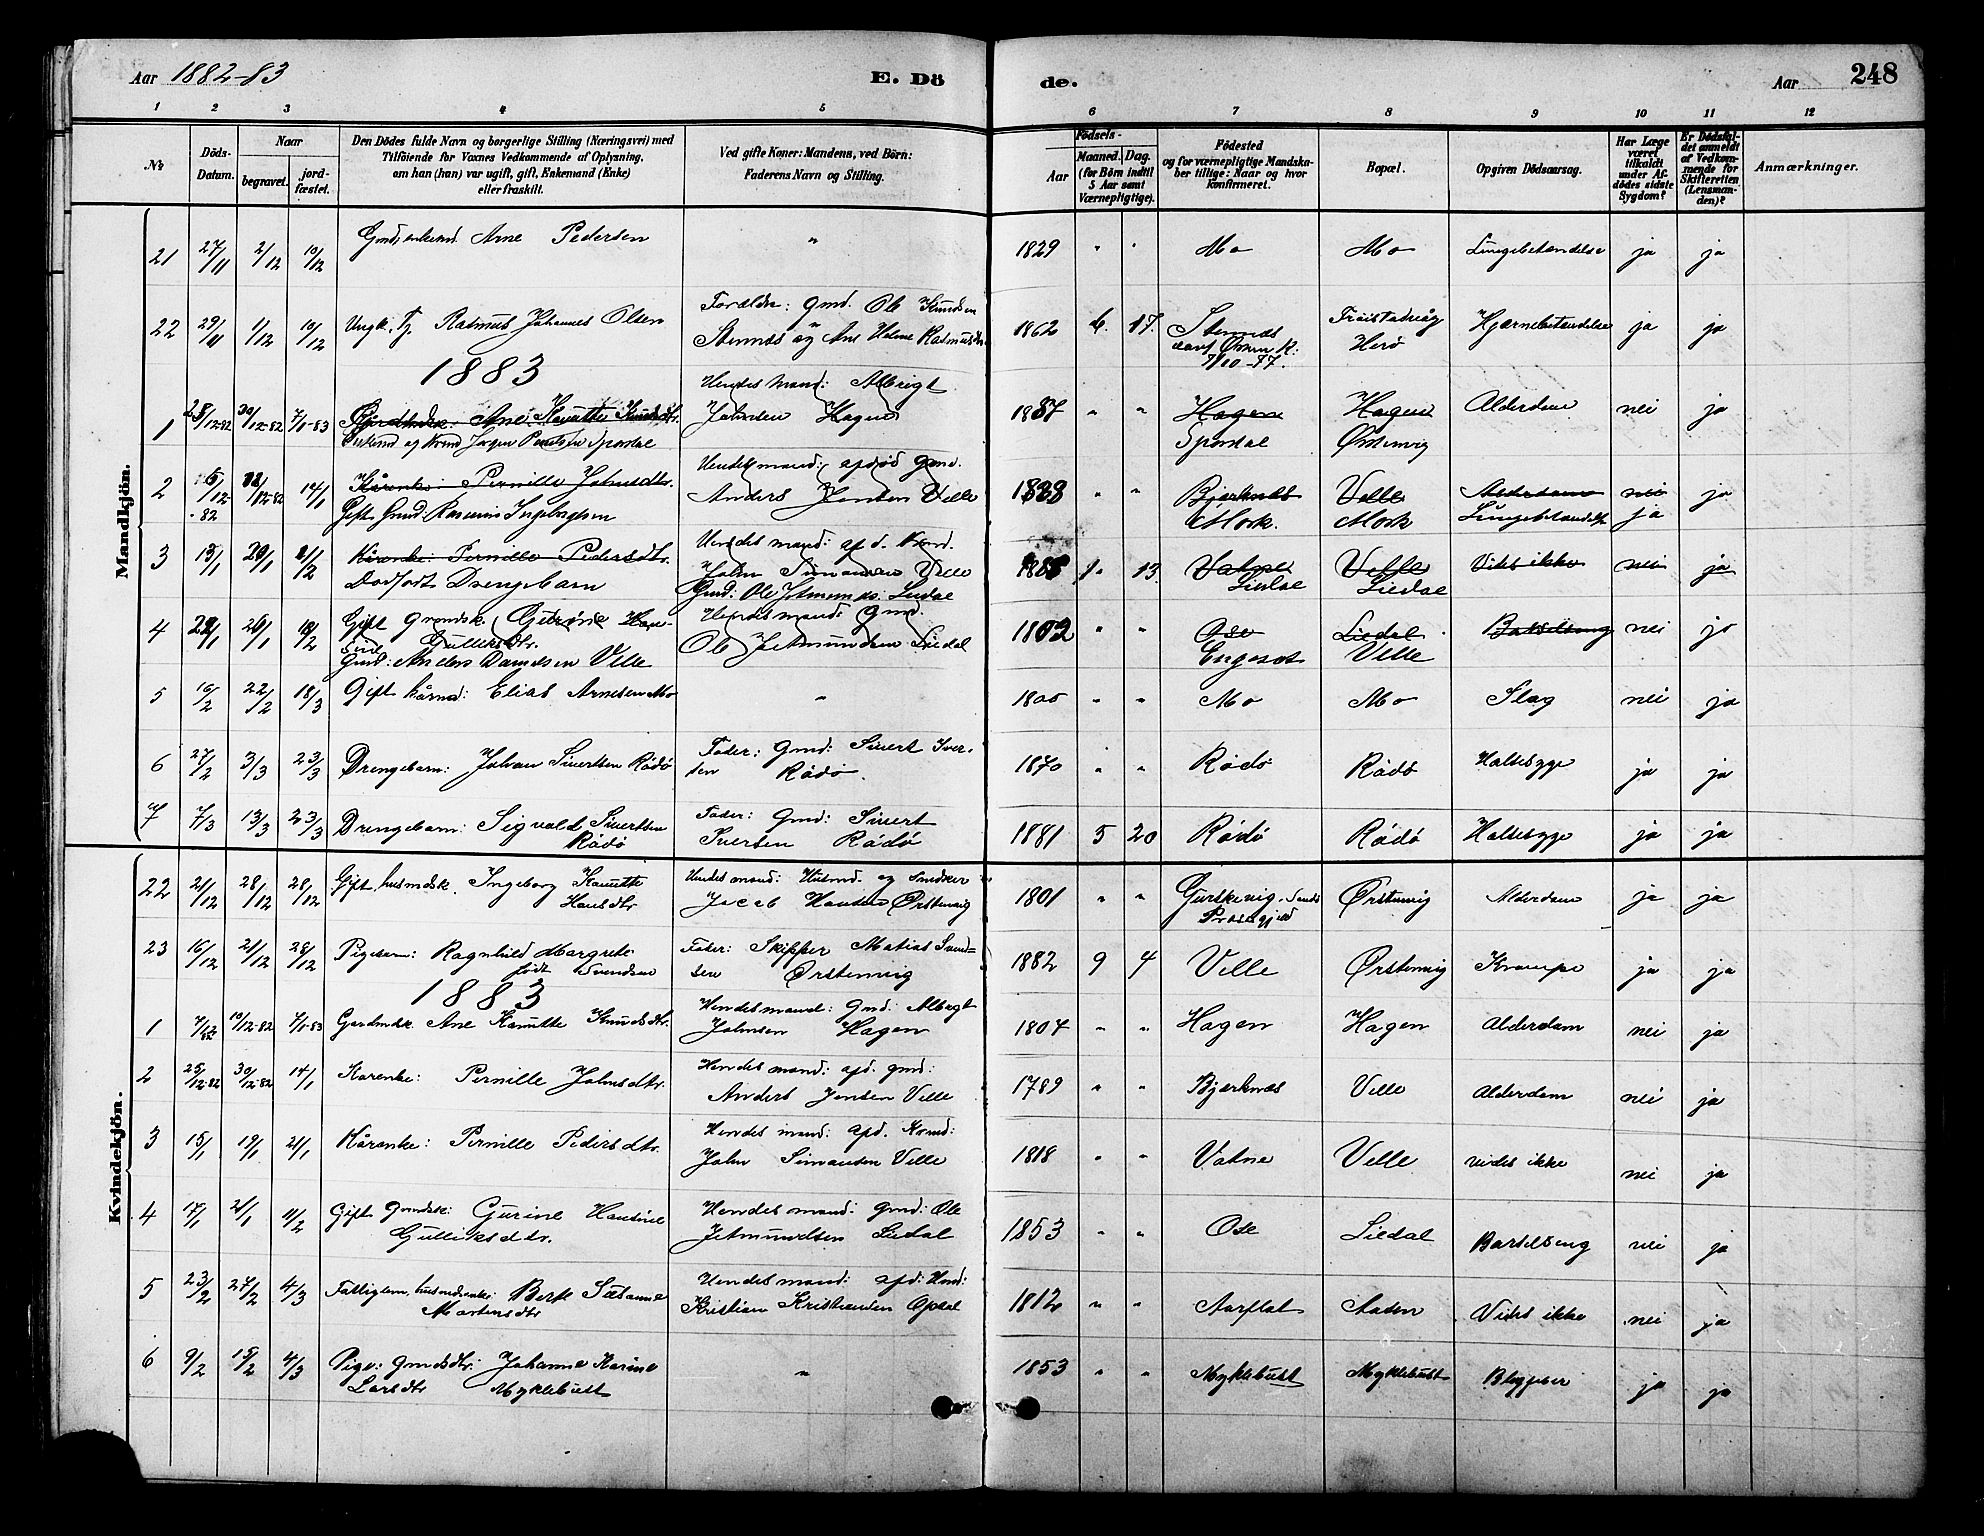 Aar 1882-83
E. Dö
de.
Aar
248
1 2 3 4 5 6 7 8 9 10 11 12
No
Döds-Datum.
Naar
begravet.
jordfæstet.
Den Dödes fulde Navn og borgerlige Stilling (Næringsvei) med Tilföiende for Voxnes Vedkommende af Oplysning, om han (han) var ugift, gift, Enkemand (Enke) eller fraskilt.
Ved gifte Koner: Mandens, ved Börn: Faderens Navn og Stilling.
Födsels-
Aar
Maaned. Dag. (for Börn indtil 5 Aar samt Værnepligtige).
Födested og for værnepligtige Mandskaber tillige: Naar og hvor konfirmeret.
Bopæl.
Opgiven Dödsaarsag.
Har Læge været tilkaldt under Afdödes sidste Sygdom?
Er Dödsfaldet anmeldt af Vedkommende for Skifteretten (Lensmanden)?
Anmærkninger.
Mandkjön.
21 27/11 2/12 10/12 Arne Pedersen " 1829 " " Mo Mo Lungebetændelse ja ja
22 29/11 1/12 10/12 Ungk. Tj. Rasmus Johannes Olsen
Forældre: Gmd. Ole Knudsen
Stennes og Ane Helene Rasmusdtr.
1862 6. 17. Stennes
7/10-77.
Herö Hjernebetændelse ja ja
1883
1 28/12-82 30/12-82 7/1-83 Ane Knutte Knudsdtr.
Spordal
Hendes mand: Albrigt
Johnsen Hagen
" " Hagen Hagen Alderdom nei ja
Spordal Ørstenvig
2 14/1 Kårenke: Pernille Johnsdtr.
Gift Gmd: Rasmus Ingebrigtsen
Hendes mand: afdød Gmd.
Anders Jensen Velle
" " Bjerknes Velle Alderdom nei ja
Mork. Mork Lungebetændelse ja
3 Kårenke: Pernille Pedersdtr.
Dødfødt Drengebarn
Hendes mand: afd. Kmd.
John Simonsen Velle
Gmd: Ole Jetmundsen Liedal
13 Vatne Velle Vides ikke nei ja
Liedal Liedal
4 26/1 Gift Grmdsk. Gurine Hansine
Gulliksdtr.
Gmd: Anders Davidsen Velle
Hendes mand: Gmd.
Ole Jetmundsen Liedal
" " Ose Liedal Barselseng nei ja
Engeset Velle
5 16/2 22/2 18/3 Gift kårmd: Elias Arnesen Mo " 1800 " " Mo Mo Slag nei ja
6 27/2 3/3 23/3 Drengebarn: Johan Sivertsen Rådø
Fader: Gmd: Sivert Iversen
Rådø.
1870 " " Rådø Rådø Halssyge ja ja
7 7/3 13/3 23/3 Drengebarn: Sigvald Sivertsen
Rådø
Fader: Gmd: Sivert
Iversen Rådø
1881 5 20 Rådø Rådø Halssyge ja ja
Kvindekjön.
22 21/12 28/12 28/12 Gift, husmdsk. Ingeborg Knutte
Hansdtr
Hendes mand: Husmd. og Snedker
Jacob Hansen Ørstenvig
1801 " " Gurskevig, Sands
Præstegjeld
Ørstenvig Alderdom ja ja
23 16/12 21/12 28/12 Pigebarn: Ragnhild Margrete
født Svendsen
Fader: Skipper Matias Svendsen
Ørstenvig
1882 9 4 Velle Ørstenvig Krampe ja ja
1883
1 7/12 82 10/12-82 7/1-83 Gardmdsk. Ane Knutte Knudsdtr.
Hendes mand: Gmd: Albrigt
Johnsen Hagen
1804 " " Hagen Hagen Alderdom nei ja
2 25/12-82 30/12-82 14/1 Kårenke: Pernille Johnsdtr.
Hendes mand: afd. gmd:
Anders Jensen Velle
1789 " " Bjerknes Velle Alderdom nei ja
3 15/1 19/1 21/1 Kårenke: Pernille Pedersdtr.
Hendes mand: afd. Kmd:
John Simonsen Velle
1818 " " Vatne Velle vides ikke nei ja
4 17/1 26/1 11/2 Gift Grmdsk: Gurine Hansine
Gulliksdtr.
Hendes mand: gmd: Ole
Jetmundsen Liedal
1853 " " Ose Liedal Barselseng nei ja
5 23/2 27/2 4/3 Fattiglem, husmdsenke: Berte Susanne
Martensdtr
Hendes mand: afd: Hmd:
Kristian Kristiansen Opsal
1812 " " Aarflot Aasen Vides ikke nei ja
6 9/2 15/2 4/3 Pige: Gmdsdtr: Johanne Karine
Larsdtr Myklebust
" 1853 " " Myklebust Myklebust ja ja